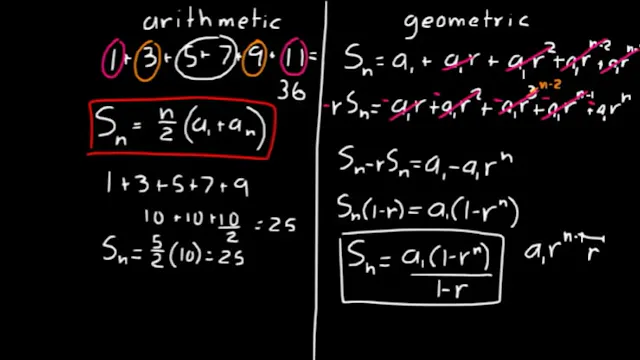 arithmetic
1 + 3 + 5 + 7 + 9 + 11 =
36
Sₙ = n/2 (a₁ + aₙ)
1 + 3 + 5 + 7 + 9
10 + 10 + 10/2 = 25
Sₙ = 5/2 (10) = 25
geometric
Sₙ = a₁ + a₁r + a₁r² + a₁rⁿ⁻² + a₁rⁿ
-rSₙ = -a₁r + -a₁r² + -a₁r³ n-2 + -a₁rⁿ⁻¹ + a₁rⁿ
Sₙ - rSₙ = a₁ - a₁rⁿ
Sₙ(1-r) = a₁(1-rⁿ)
Sₙ = a₁(1-rⁿ)/1-r
a₁rⁿ⁻¹ r